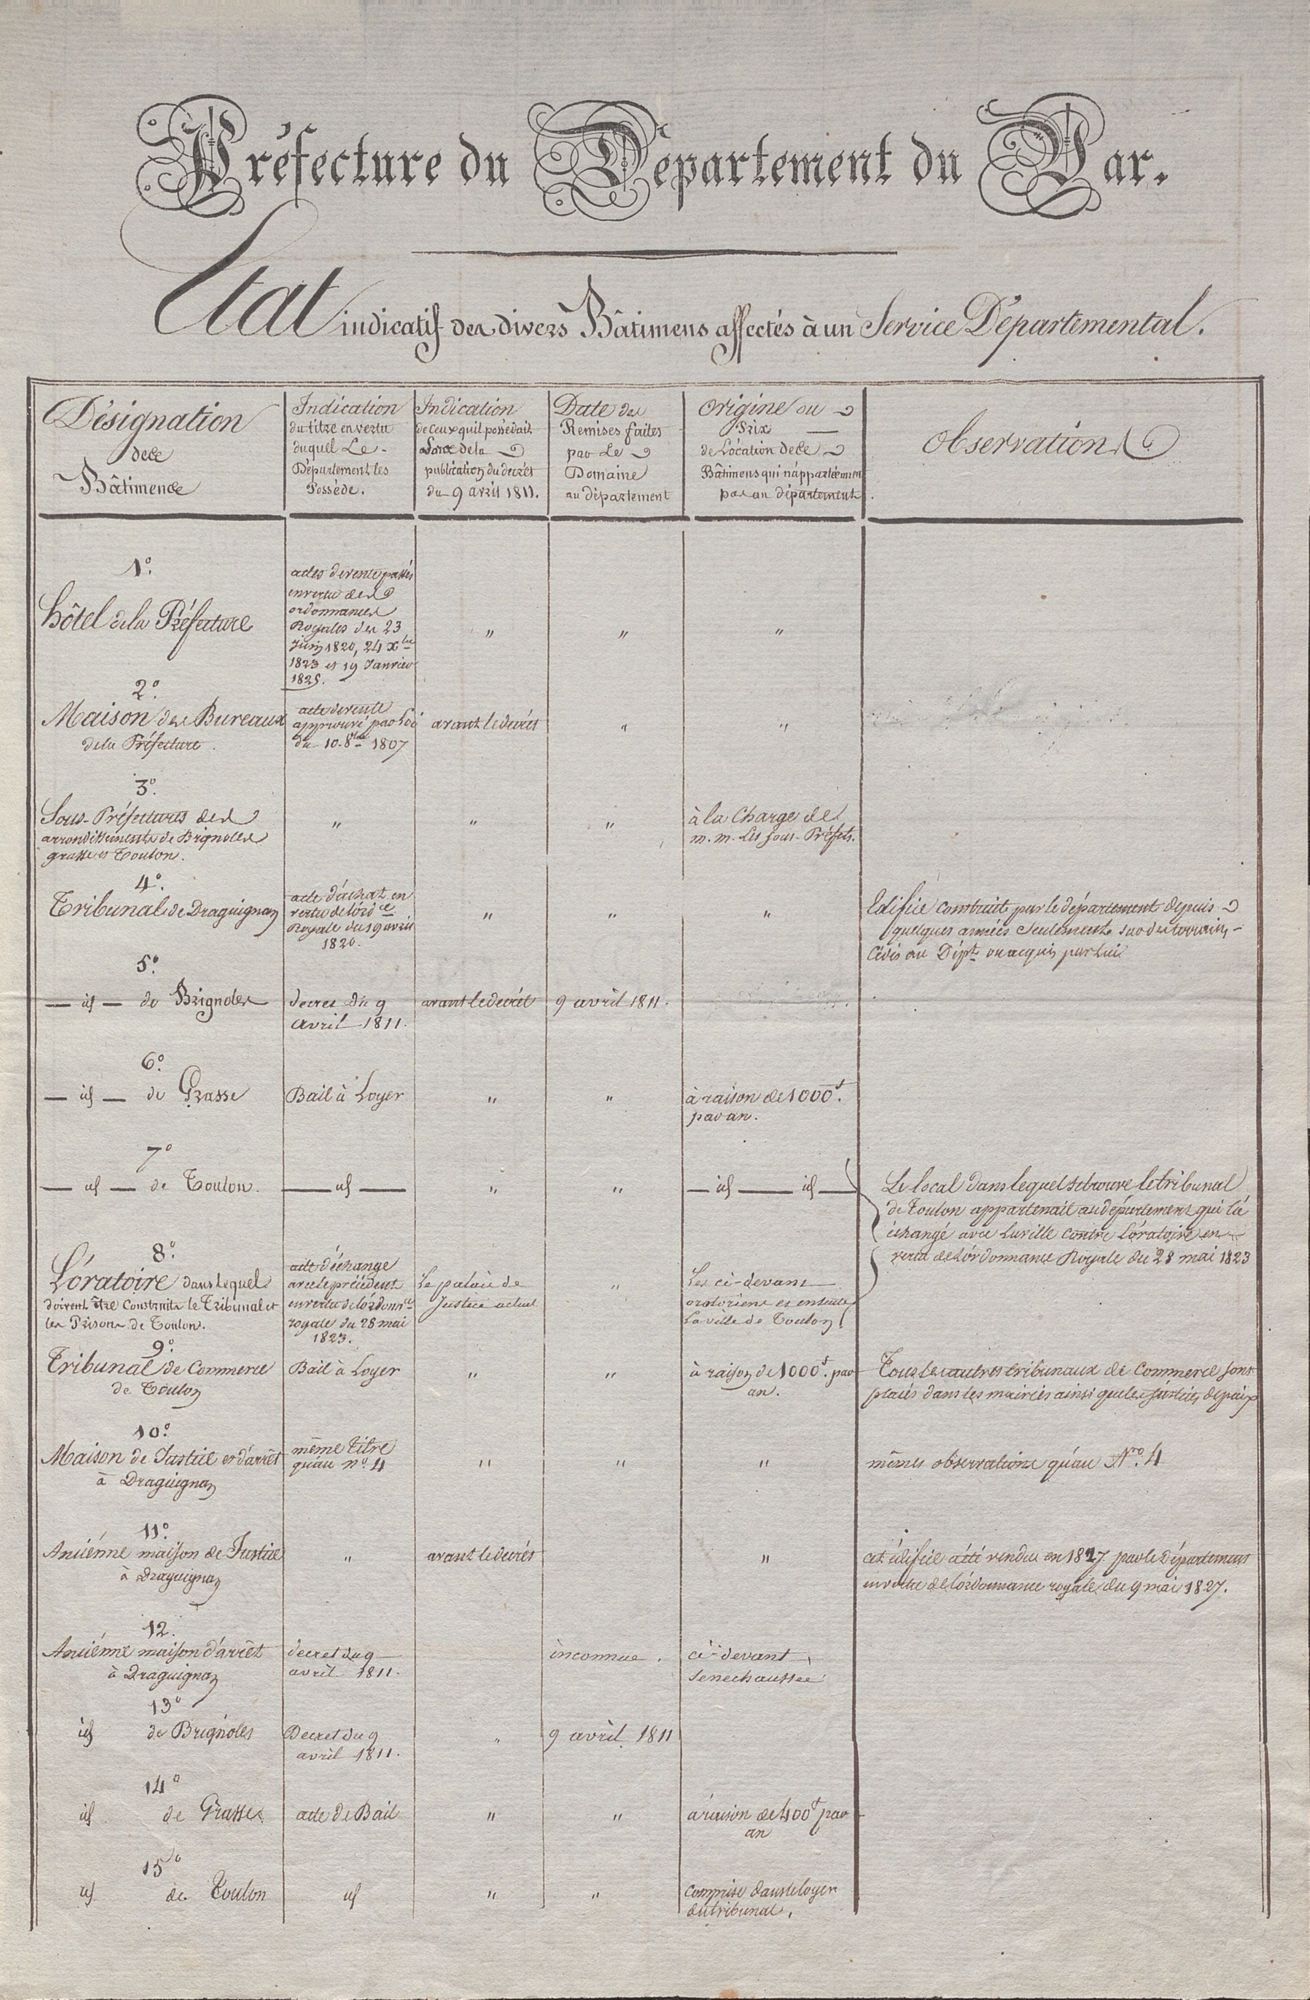 Préfecture du Département du Var.
Etat indicatif des divers Bâtimens affectés à un Service Départemental.
Désignation
des
Bâtimens
Indication
du titre en vertu
duquel Le
Département les
Possède.
Indication
de ceux qu'il possédait
Lors de la
publication du decret
du 9 avril 1811.
Date des
Remises faites
par Le
Domaine
au département
Origine ou
Prix
de Location de ces
Bâtimens qui n'appartiennent
pas au département.
Observations
1º.
hôtel de la Préfecture
actes de vente passés
en vertu des
ordonnances
Royales des 23
Juin 1820, 24 Xbre
1823 et 19 Janvier
1825.
"
"
"
2º.
Maison des Bureaux
de la Préfecture.
acte de vente
approuvé par Loi
du 10 8bre 1807
avant le decret
"
"
3º.
Sous-Préfectures des
arrondissements de Brignoles
grasse et Toulon.
"
"
"
à la Charge de
m.m. Les Sous-Préfets.
4º.
Tribunal de Draguignan
acte d'achat en
vertu de l'ordce
Royale du 19 avril
1820.
"
"
"
Edifice construit par le département depuis
quelques années seulement sur des terrains
Cédés au Dépt. ou acquis par lui
5º.
— id — de Brignoles
decret du 9
avril 1811.
avant le decret
9 avril 1811.
6º.
— id — de Grasse
Bail à Loyer
"
"
à raison de 1000f.
par an.
7º
— id — de Toulon.
— id —
"
"
— id — id —
Le local dans lequel se trouve le tribunal
de Toulon appartenait au département qui l'a
échangé avec la ville contre l'oratoire en
vertu de l'ordonnance Royale du 28 mai 1823
8º.
L'oratoire dans lequel
doivent être Construits le Tribunal et
les Prisons de Toulon.
acte d'échange
avec le précédent
en vertu de l'ordonnce
royale du 28 mai
1823.
Le palais de
Justice actuel
"
Les ci-devant
oratoriens et ensuite
la ville de Toulon
9º.
Tribunal de Commerce
de Toulon
Bail à Loyer
"
"
à raison de 1000f. par
an.
Tous les autres tribunaux de Commerce sont
placés dans les mairies ainsi que les justices de paix
10º.
Maison de Justice et d'arrêt
à Draguignan
même titre
qu'au nº. 4
"
"
"
mêmes observations qu'au Nro. 4
11º.
Anciénne maison de Justice
à Draguignan
"
avant le decret
"
cet édifice a été vendu en 1827 par le Département
en vertu de l'ordonnance royale du 9 mai 1827.
12.
Anciénne maison d'arrêt
à Draguignan
decret du 9
avril 1811.
inconnue.
ci-devant
senechaussée
13º
id de Brignoles
Decret du 9
avril 1811.
"
9 avril 1811
14º
id de Grasse
acte de Bail
"
"
à raison de 400f par
an
15º
id de Toulon
id
"
"
comprise dans le loyer
du tribunal.